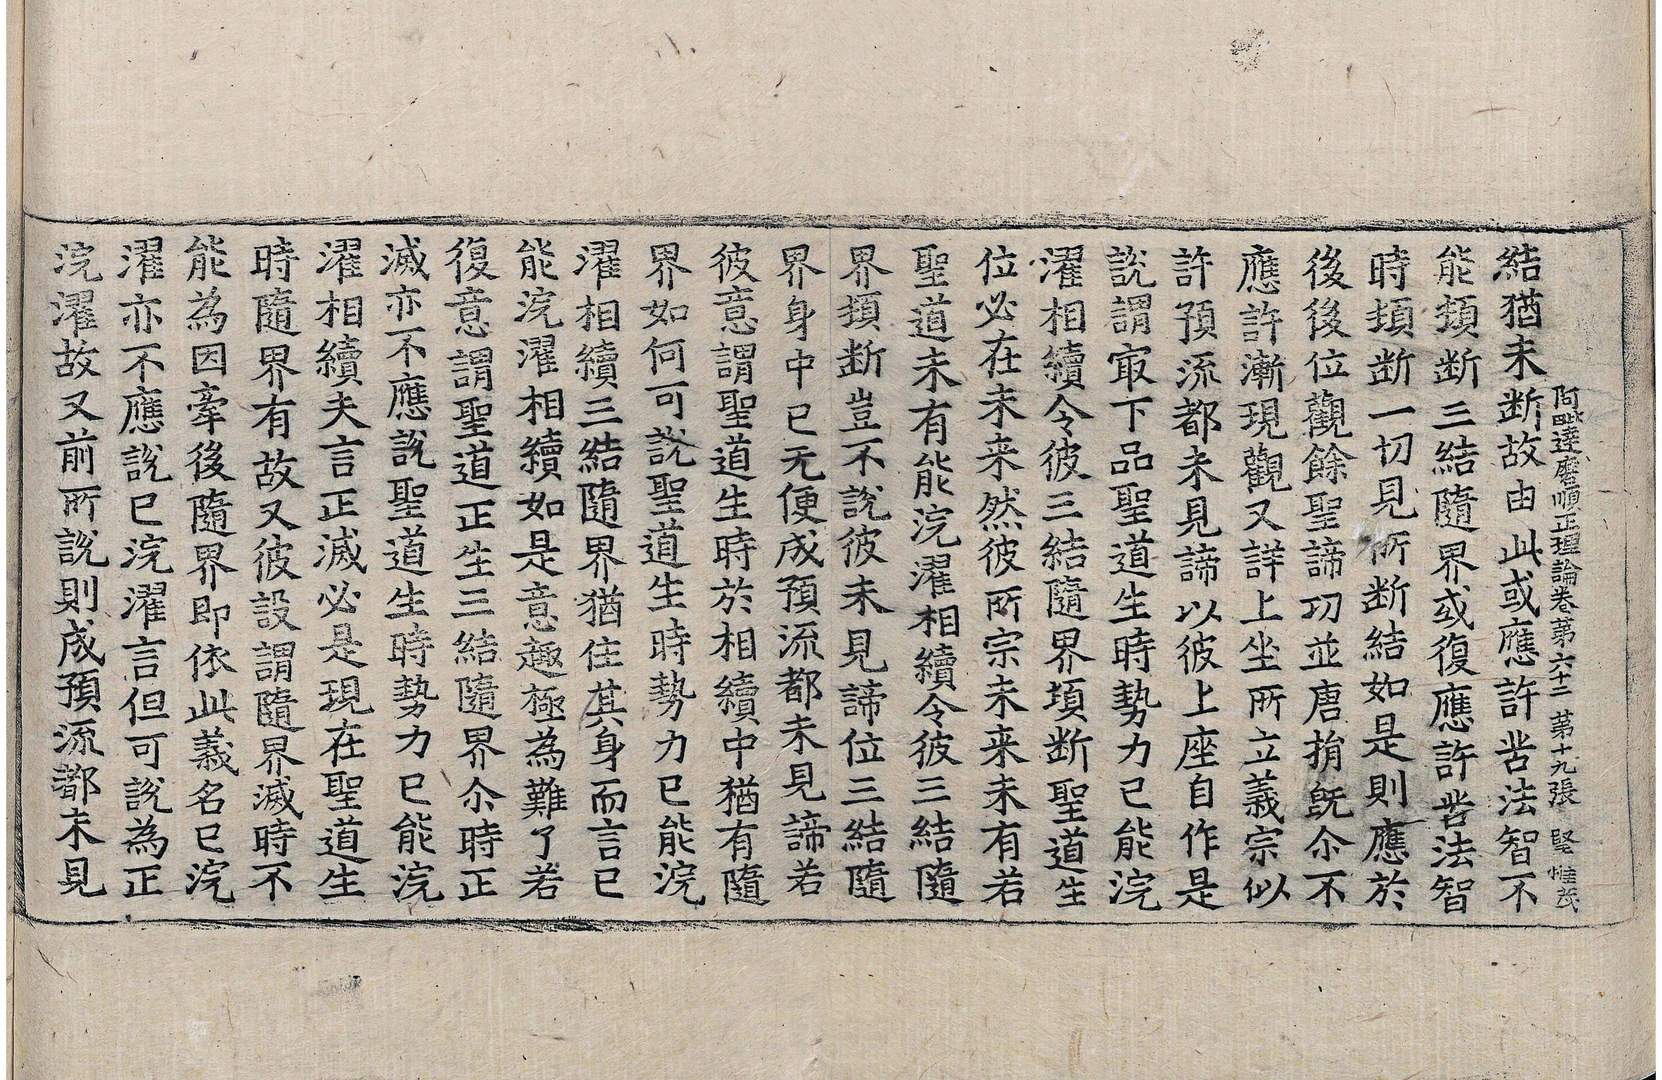 阿毗達磨順正理論卷苐六十二 苐十九張 堅惟㦲
結猶未断故由此或應許苦法智不
能頓断三結隨界或復應許苦法智
時頓断一切見所断結如是則應於
後後位觀餘聖諦㓛並唐捐旣尒不
應許漸現觀又詳上坐所立義宗似
許預流都未見諦以彼上座自作是
說謂㝡下品聖道生時勢力已能浣
濯相續令彼三結隨界頓断聖道生
位必在未来然彼所宗未来未有若
聖道未有能浣濯相續令彼三結隨
界頓断豈不說彼未見諦位三結隨
界身中已无便成預流都未見諦若
彼意謂聖道生時於相續中猶有隨
界如何可說聖道生時勢力已能浣
濯相續三結隨界猶住其身而言已
能浣濯相續如是意趣極為難了若
復意謂聖道正生三結隨界尒時正
滅亦不應說聖道生時勢力已能浣
濯相續夫言正滅必是現在聖道生
時隨界有故又彼設謂隨界滅時不
能為因牽後隨界即依此義名已浣
濯亦不應說已浣濯言但可說為正
浣濯故又前所說則成預流都未見